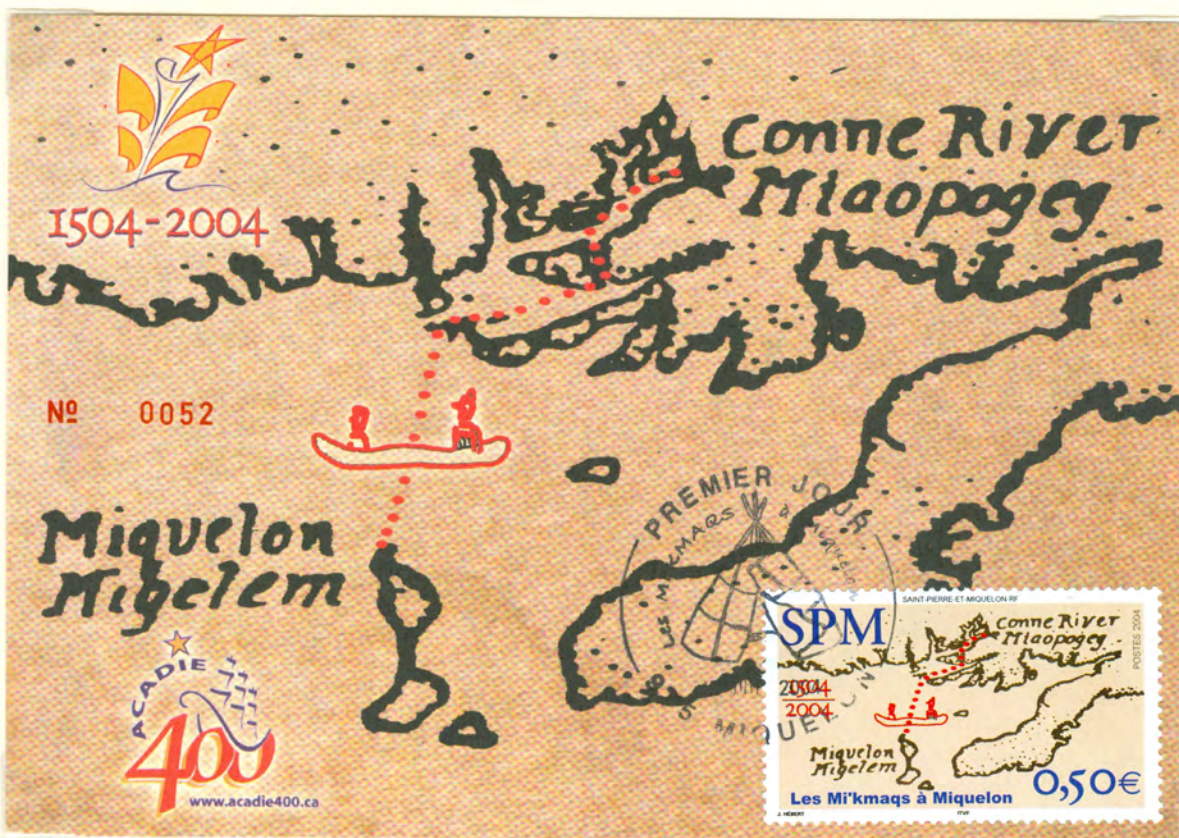 1504-2004
Conne River
Miaopogeg
Nº 0052
Miquelon
Migelem
ACADIE
400
www.acadie400.ca
PREMIER JOUR
LES MI'KMAQS à Miquelon
MIQUELON
SAINT-PIERRE-ET-MIQUELON RF
SPM
POSTES 2004
Conne River
Miaopogeg
1504
2004
Miquelon
Migelem
0,50€
Les Mi'kmaqs à Miquelon
J. HÉBERT
ITVF